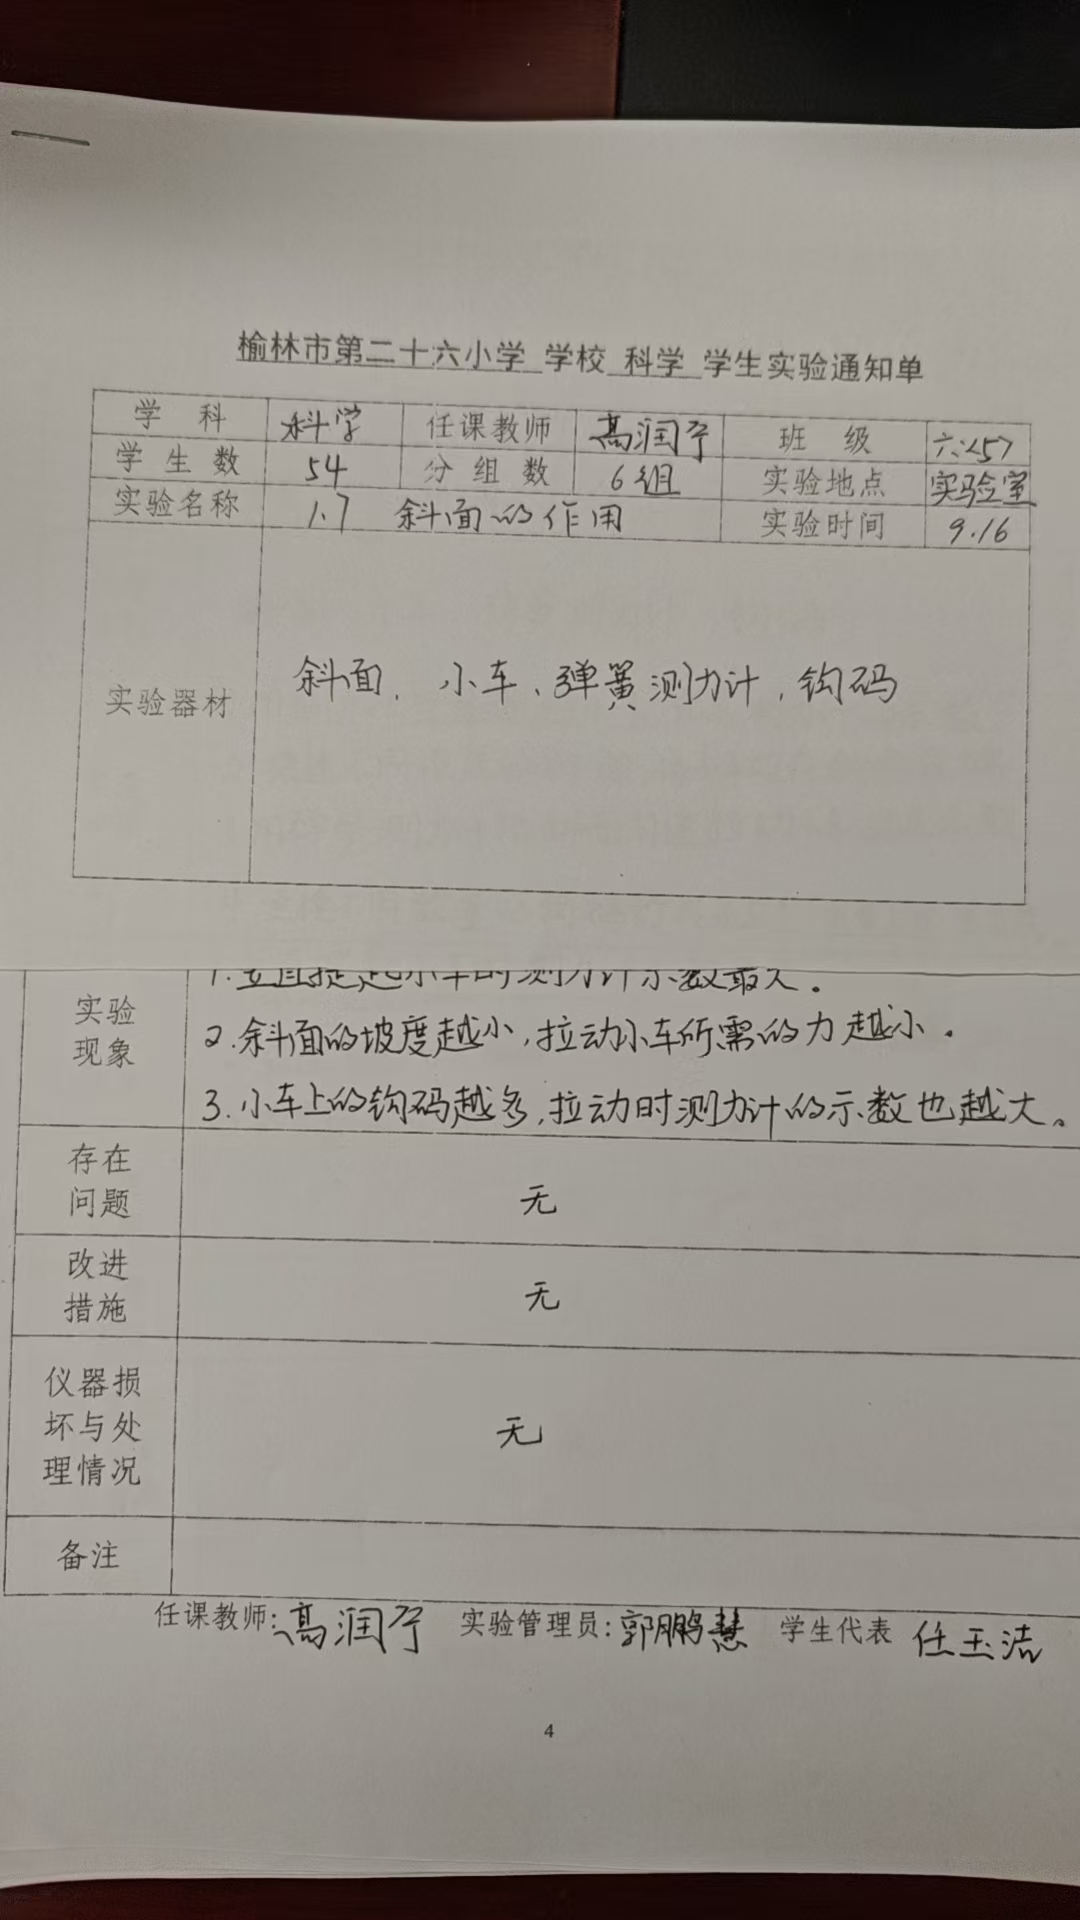 榆林市第二十六小学 学校 科学 学生实验通知单
学科 科学 任课教师 高润宁 班级 六<5>
学生数 54 分组数 6组 实验地点 实验室
实验名称 1.7 斜面的作用 实验时间 9.16
实验器材 斜面、小车、弹簧测力计,钩码
实验
现象
1.竖直提起小车时测力计示数最大。
2.斜面的坡度越小,拉动小车所需的力越小。
3.小车上的钩码越多,拉动时测力计的示数也越大。
存在
问题
无
改进
措施
无
仪器损
坏与处
理情况
无
备注
任课教师:高润宁 实验管理员:郭鹏慧 学生代表 任玉洁
4